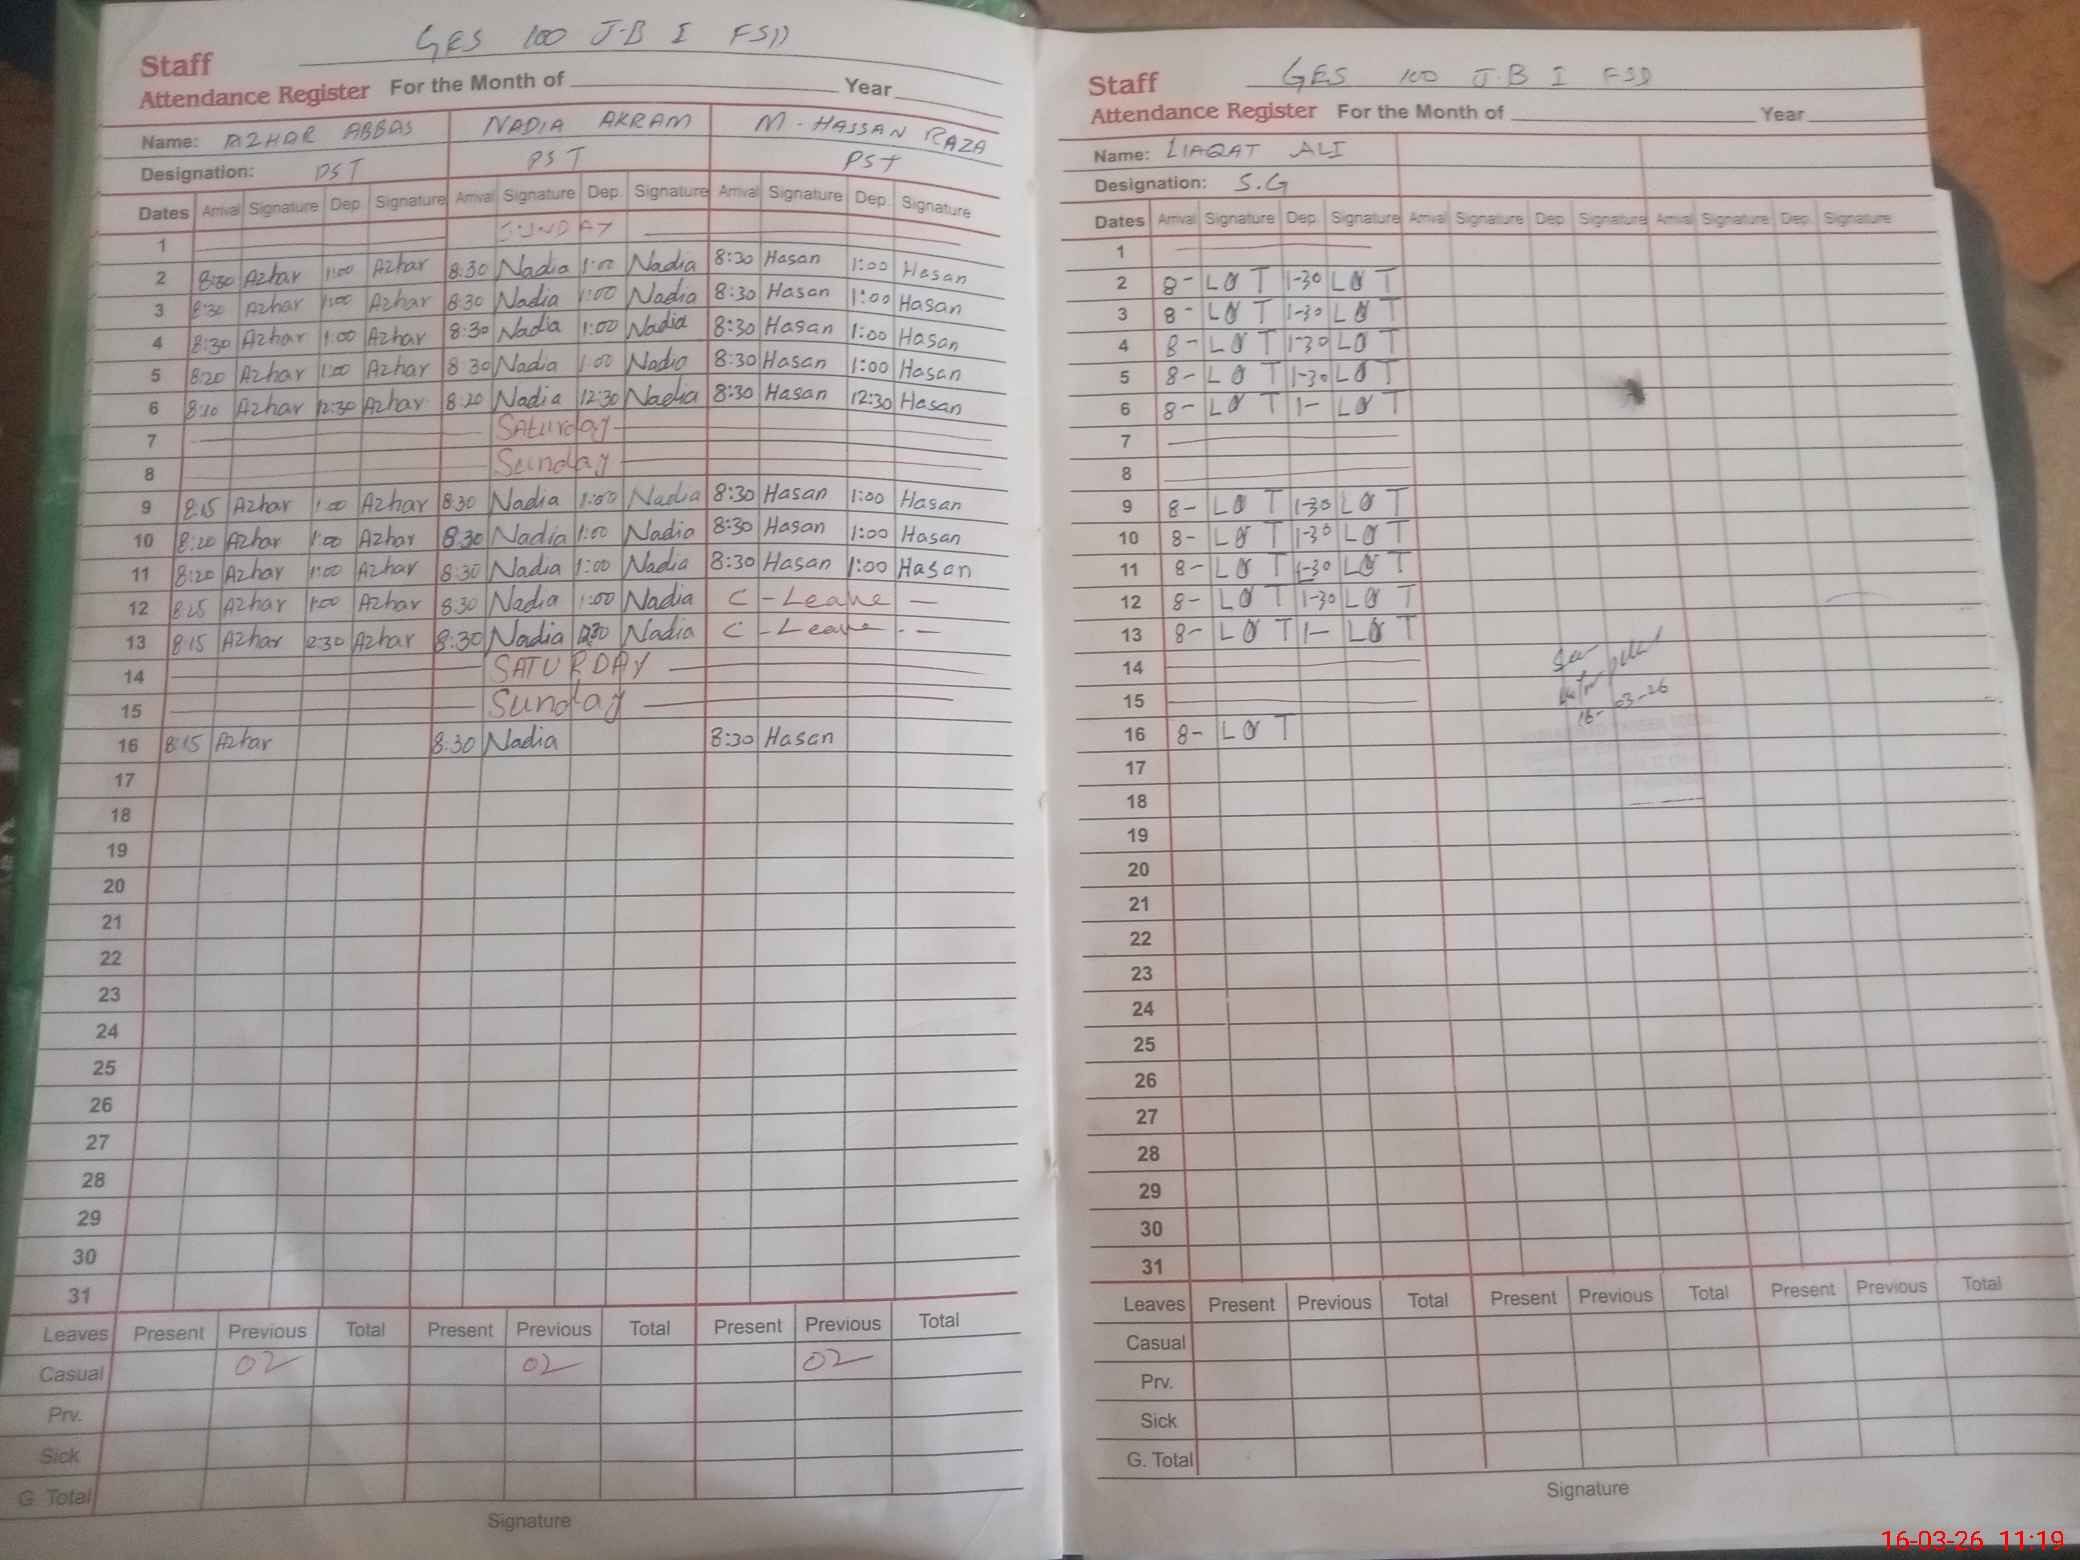 GES 100 J-B I FSD
Staff
Attendance Register For the Month of Year
Name: AZHAR ABBAS NADIA AKRAM M-HASSAN RAZA
Designation: PST PST PST
Dates Arrival Signature Dep. Signature Arrival Signature Dep. Signature Arrival Signature Dep. Signature
1 SUNDAY
2 8:30 Azhar 1:00 Azhar 8:30 Nadia 1:00 Nadia 8:30 Hasan 1:00 Hasan
3 8:30 Azhar 1:00 Azhar 8:30 Nadia 1:00 Nadia 8:30 Hasan 1:00 Hasan
4 8:30 Azhar 1:00 Azhar 8:30 Nadia 1:00 Nadia 8:30 Hasan 1:00 Hasan
5 8:20 Azhar 1:00 Azhar 8:30 Nadia 1:00 Nadia 8:30 Hasan 1:00 Hasan
6 8:10 Azhar 12:30 Azhar 8:20 Nadia 12:30 Nadia 8:30 Hasan 12:30 Hasan
7 Saturday
8 Sunday
9 8:15 Azhar 1:00 Azhar 8:30 Nadia 1:00 Nadia 8:30 Hasan 1:00 Hasan
10 8:20 Azhar 1:00 Azhar 8:30 Nadia 1:00 Nadia 8:30 Hasan 1:00 Hasan
11 8:20 Azhar 1:00 Azhar 8:30 Nadia 1:00 Nadia 8:30 Hasan 1:00 Hasan
12 8:25 Azhar 1:00 Azhar 8:30 Nadia 1:00 Nadia C-Leave
13 8:15 Azhar 12:30 Azhar 8:30 Nadia 12:30 Nadia C-Leave
14 SATURDAY
15 Sunday
16 8:15 Azhar 8:30 Nadia 8:30 Hasan
17
18
19
20
21
22
23
24
25
26
27
28
29
30
31
Leaves Present Previous Total Present Previous Total Present Previous Total
Casual 02 02 02
Prv.
Sick
G. Total
Signature
GES 100 J.B I FSD
Staff
Attendance Register For the Month of Year
Name: LIAQAT ALI
Designation: S.G
Dates Arrival Signature Dep. Signature Arrival Signature Dep. Signature Arrival Signature Dep. Signature
1
2 8- L O T 1-30 L O T
3 8- L O T 1-30 L O T
4 8- L O T 1-30 L O T
5 8- L O T 1-30 L O T
6 8- L O T 1- L O T
7
8
9 8- L O T 1-30 L O T
10 8- L O T 1-30 L O T
11 8- L O T 1-30 L O T
12 8- L O T 1-30 L O T
13 8- L O T 1- L O T
14
15 16-03-26
16 8- L O T
17
18
19
20
21
22
23
24
25
26
27
28
29
30
31
Leaves Present Previous Total Present Previous Total Present Previous Total
Casual
Prv.
Sick
G. Total
Signature
16-03-26 11:19